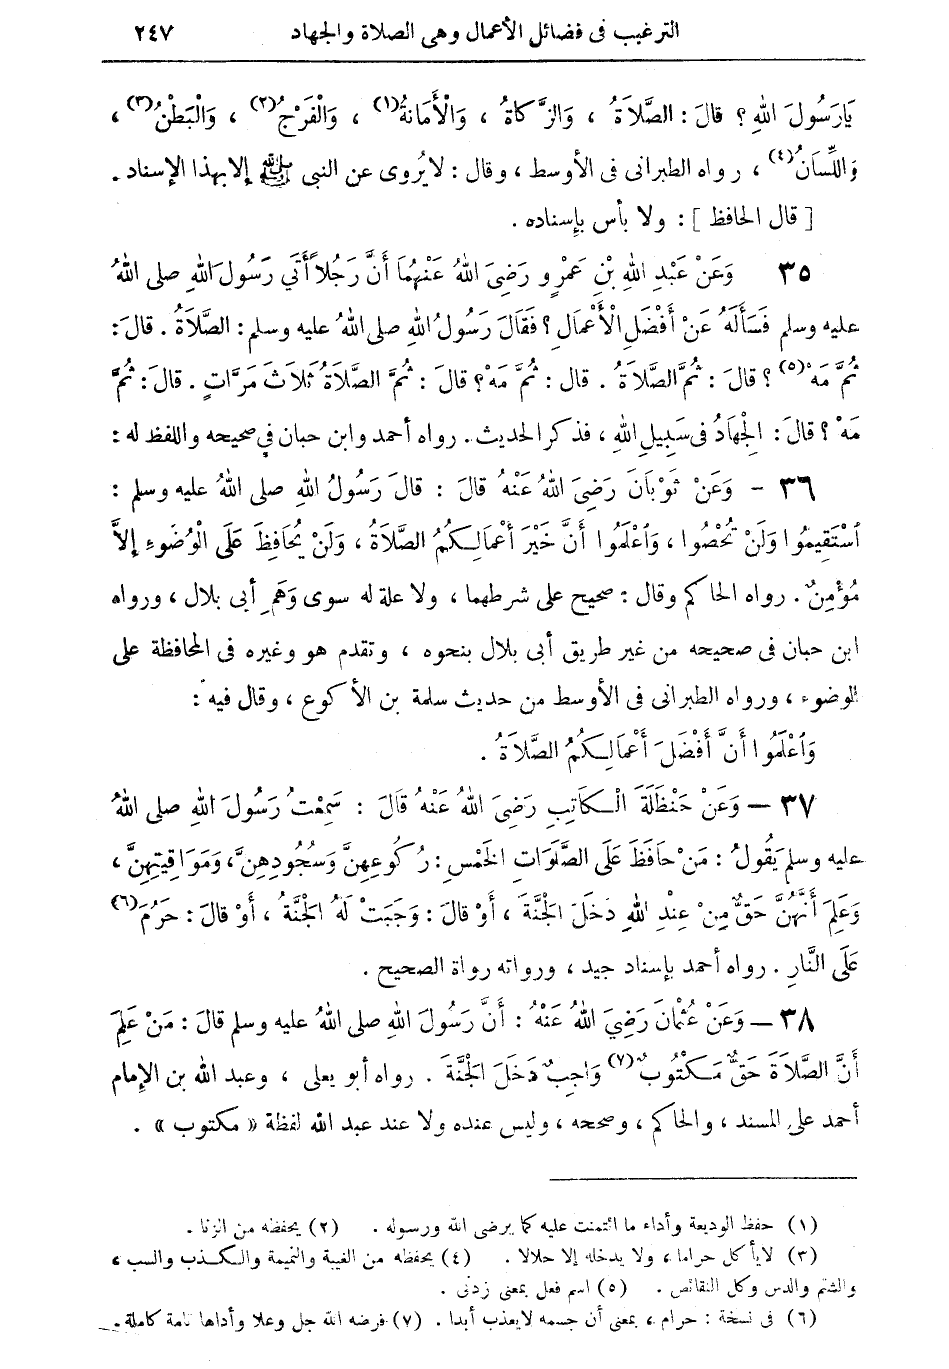 الترغيب فى فضائل الأعمال وهى الصلاة والجهاد ٢٤٧
يَارَسُولَ اللهِ ؟ قالَ : الصَّلاَةُ ، وَالزَّكاةُ ، وَالْأَمَانَةُ(١) ، وَالْفَرْجُ(٢) ، وَالْبَطْنُ(٣) ،
وَاللِّسَانُ(٤) ، رواه الطبرانى فى الأوسط ، وقال : لايُروى عن النبى ﷺ إلا بهذا الإسناد .
[ قال الحافظ ] : ولا بأس بإسناده .
٣٥ وَعَنْ عَبْدِ اللهِ بْنِ عَمْرٍو رَضِىَ اللهُ عَنْهُمَا أَنَّ رَجُلاً أَتَي رَسُولَ اللهِ صلى اللهُ
عليه وسلم فَسَأَلَهُ عَنْ أَفْضَلِ الْأَعْمَالِ ؟ فَقَالَ رَسُولُ اللهِ صلى اللهُ عليه وسلم : الصَّلاَةُ . قالَ :
ثُمَّ مَهْ(٥) ؟ قالَ : ثُمَّ الصَّلاَةُ . قال : ثُمَّ مَهْ ؟ قالَ : ثُمَّ الصَّلاَةُ ثَلاَثَ مَرَّاتٍ . قالَ : ثُمَّ
مَهْ ؟ قالَ : الْجِهَادُ فى سَبِيلِ اللهِ ، فذكر الحديث . رواه أحمد وابن حبان في صحيحه واللفظ له :
٣٦ - وَعَنْ ثَوْبَانَ رَضِىَ اللهُ عَنْهُ قالَ : قالَ رَسُولُ اللهِ صلى اللهُ عليه وسلم :
اَسْتَقِيمُوا وَلَنْ تُحْصُوا ، وَاَعْلَمُوا أَنَّ خَيْرَ أَعْمَالِكُمُ الصَّلاَةُ ، وَلَنْ يُحَافِظَ عَلَى الْوُضُوءِ إلاَّ
مُؤْمِنٌ . رواه الحاكم وقال : صحيح على شرطهما ، ولا علة له سوى وَهَمِ أبى بلال ، ورواه
ابن حبان فى صحيحه من غير طريق أبى بلال بنحوه ، وتقدم هو وغيره فى المحافظة على
الوضوء ، ورواه الطبرانى فى الأوسط من حديث سلمة بن الأكوع ، وقال فيه :
وَاَعْلَمُوا أَنَّ أَفْضَلَ أَعْمَالِكُمُ الصَّلاَةُ .
٣٧ — وَعَنْ حَنْظَلَةَ الْكَاتِبِ رَضِىَ اللهُ عَنْهُ قَالَ : سَمِعْتُ رَسُولَ اللهِ صلى اللهُ
عليه وسلم يَقُولُ : مَنْ حَافَظَ عَلَى الصَّلَوَاتِ الْخَمْسِ : رُكُوعِهِنَّ وَسُجُودِهِنَّ ، وَمَوَاقِيتِهِنَّ ،
وَعَلِمَ أَنَّهُنَّ حَقٌّ مِنْ عِنْدِ اللهِ دَخَلَ الْجَنَّةَ ، أَوْ قالَ : وَجَبَتْ لَهُ الْجَنَّةُ ، أَوْ قالَ : حَرُمَ(٦)
عَلَى النَّارِ . رواه أحمد بإسناد جيد ، ورواته رواة الصحيح .
٣٨ — وَعَنْ عُثْمَانَ رَضِيَ اللهُ عَنْهُ : أَنَّ رَسُولَ اللهِ صلى اللهُ عليه وسلم قالَ : مَنْ عَلِمَ
أَنَّ الصَّلاَةَ حَقٌّ مَكْتُوبٌ(٧) وَاجِبٌ دَخَلَ الْجَنَّةَ . رواه أبو يعلى ، وعبد الله بن الإمام
أحمد على المسند ، والحاكم ، وصححه ، وليس عنده ولا عند عبد الله لفظة « مكتوب » .
(١) حفظ الوديعة وأداء ما ائتمنت عليه كما يرضى الله ورسوله . (٢) يحفظه من الزنا .
(٣) لايأكل حراما ، ولا يدخله إلا حلالا . (٤) يحفظه من الغيبة والنميمة والكذب والسب ،
والشتم والدس وكل النقائص . (٥) اسم فعل بمعنى زدنى .
(٦) فى نسخة : حرام ، بمعنى أن جسمه لايعذب أبدا . (٧) فرضه الله جل وعلا وأداها تامة كاملة .